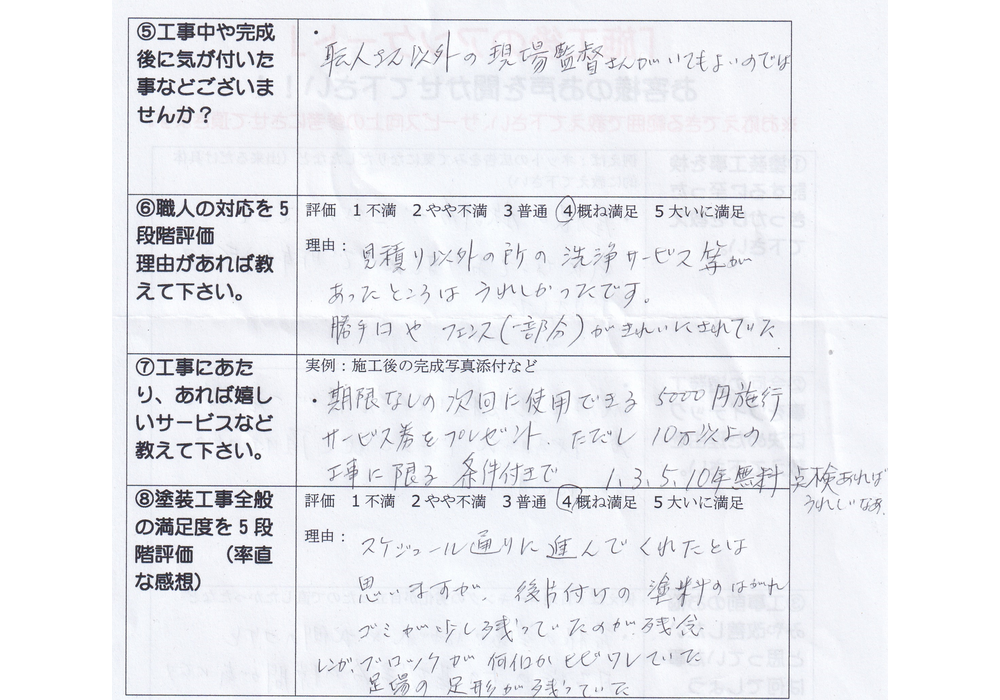 ⑤工事中や完成
後に気が付いた
事などございま
せんか?
・職人さん以外の現場監督さんがいてもよいのでは
⑥職人の対応を5
段階評価
理由があれば教
えて下さい。
評価 1不満 2やや不満 3普通 ④概ね満足 5大いに満足
理由: 見積り以外の所の洗浄サービス等が
あったところはうれしかったです。
勝手口やフェンス(一部分)がきれいにされていた
⑦工事にあた
り、あれば嬉し
いサービスなど
教えて下さい。
実例:施工後の完成写真添付など
・期限なしの次回に使用できる5000円施行
サービス券をプレゼント ただし10万以上の
工事に限る 条件付きで 1,3,5,10年無料点検あれば
うれしいなあ。
⑧塗装工事全般
の満足度を5段
階評価 (率直
な感想)
評価 1不満 2やや不満 3普通 ④概ね満足 5大いに満足
理由: スケジュール通りに進んでくれたとは
思いますが、後片付けの塗料のはがれ
ゴミが少し残っていたのが残念
レンガ、ブロックが何個かヒビワレていた
足場の足形が残っていた